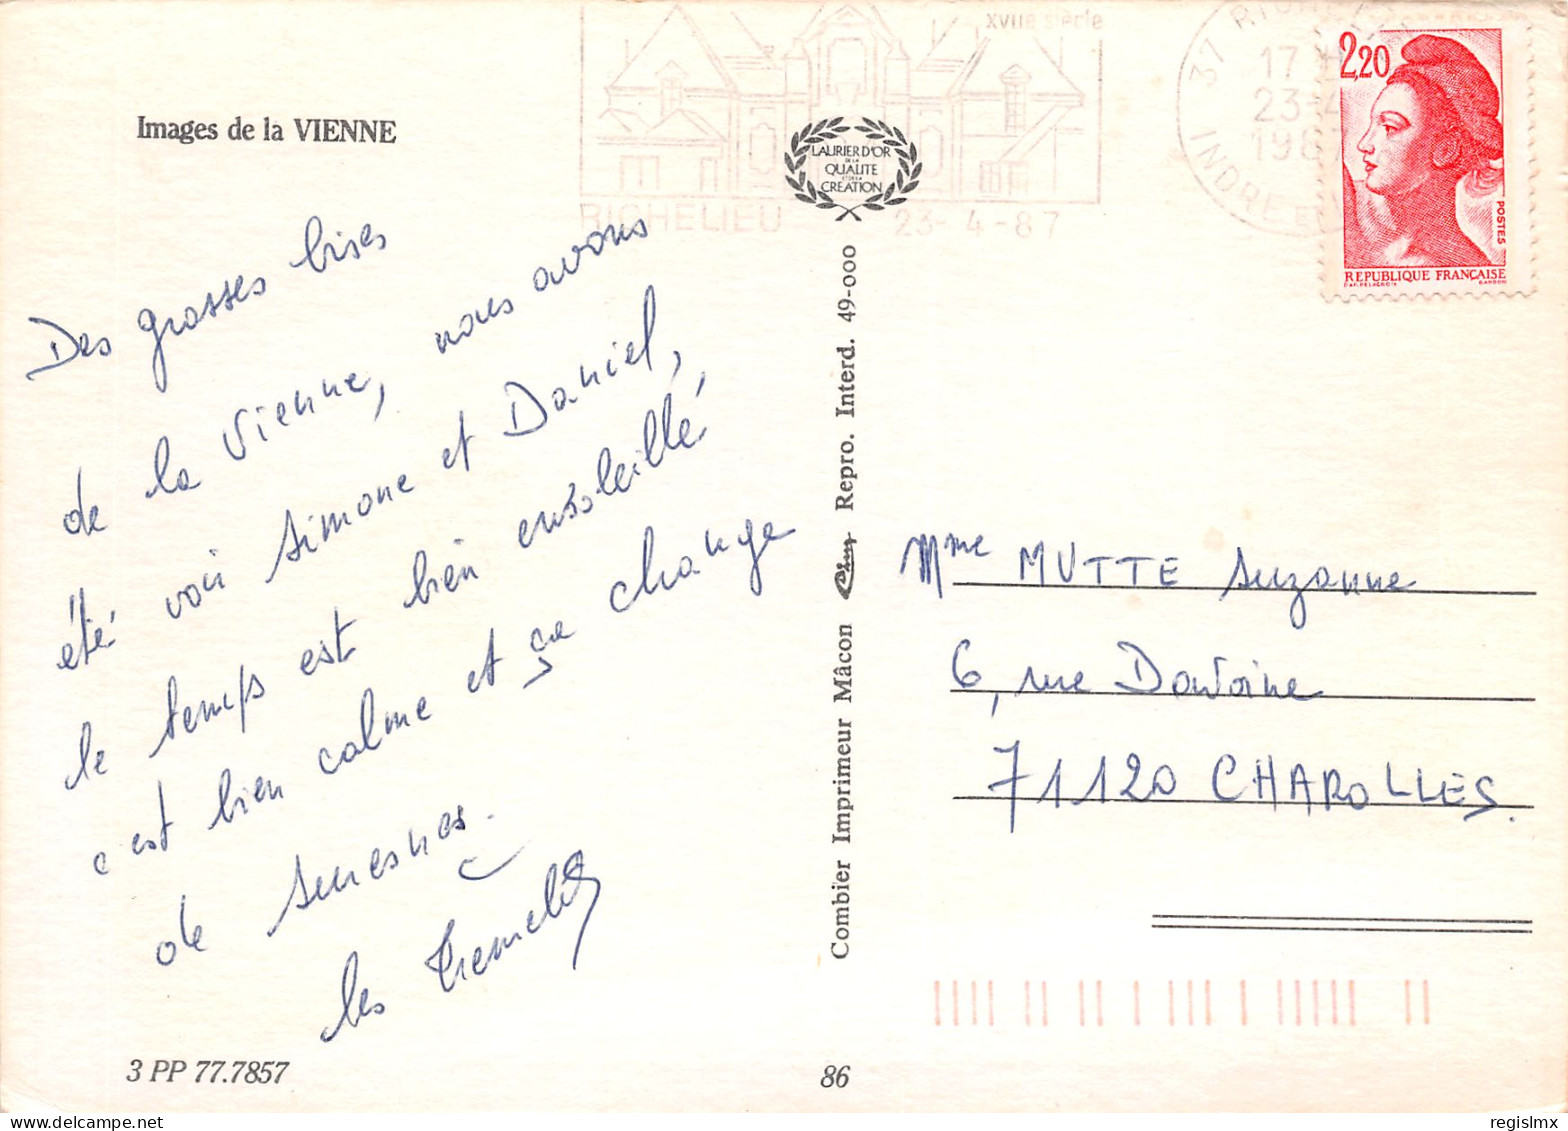 XVIIe siècle
RICHELIEU 23-4-87
37 RICHELIEU
17 H
23-4
1987
INDRE ET
2,20
POSTES
REPUBLIQUE FRANÇAISE
D'AP. DELACROIX GANDON
Images de la VIENNE
LAURIER D'OR
DE LA
QUALITE
ET DE LA
CREATION
Des grosses bises
de la Vienne, nous avons
été voir Simone et Daniel,
le temps est bien ensoleillé
c'est bien calme et ça change
de Suresnes.
les
3 PP 77.7857
Combier Imprimeur Mâcon Cim Repro. Interd. 49-000
86
Mme MUTTE Suzanne
6, rue
71120 CHAROLLES.
regislmx